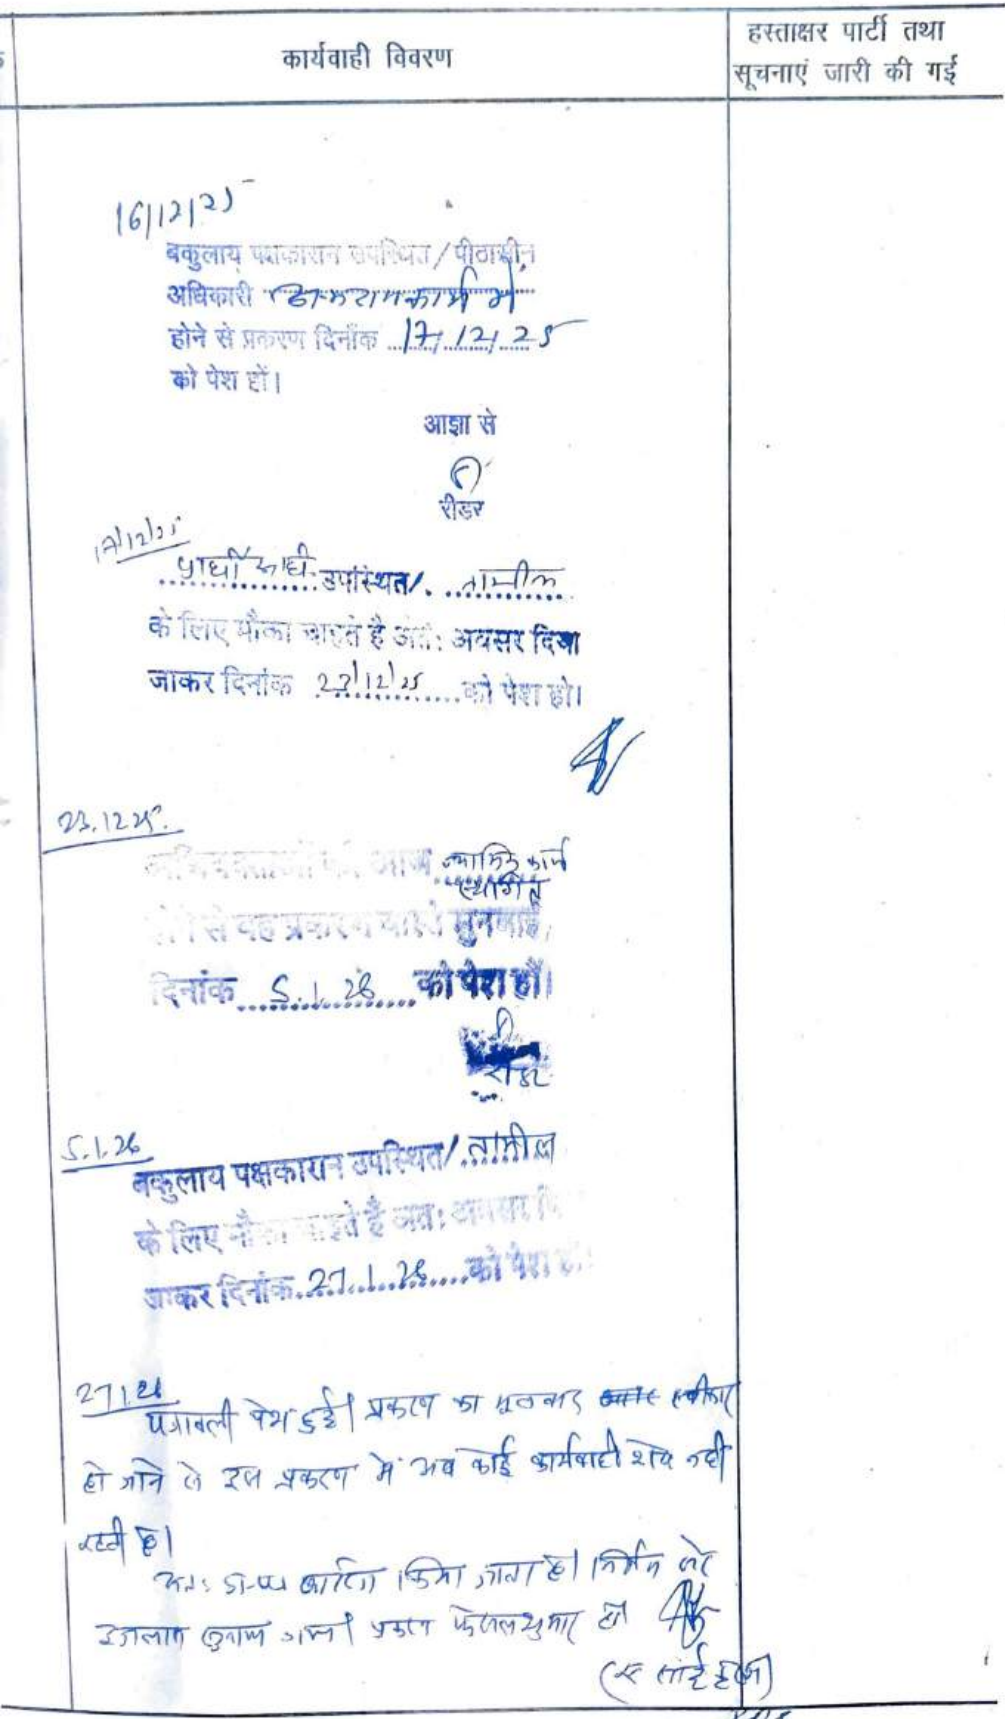 कार्यवाही विवरण
हस्ताक्षर पार्टी तथा
सूचनाएं जारी की गई
16/12/25
बकुलाय पक्षकारान उपस्थित/पीठासीन
अधिकारी में
होने से प्रकरण दिनाँक 17/12/25
को पेश हों।
आज्ञा से
रीडर
17/12/25
प्रार्थी उपस्थित/. तामील
के लिए मौका चाहते है अतः अवसर दिया
जाकर दिनांक 23/12/25 को पेश हो।
23.12.25.
आज न्यायिक कार्य
स्थगित
होने से वह प्रकरण वास्ते सुनवाई,
दिनांक 5.1.26 को पेश हों।
रीडर
5.1.26
बकुलाय पक्षकारान उपस्थित/ तामील
के लिए मौका चाहते हैं अतः अवसर दि
जाकर दिनांक 27.1.26 को पेश हो
27.1.26
पत्रावली पेश हुई। प्रकरण का मूलवाद स्वीकार
हो जाने से इस प्रकरण में अब कोई कार्यवाही शेष नही
रहती है।
अतः किया जाता है। निर्णय
इजलास सुनाया गया। प्रकरण फैसल शुमार हो